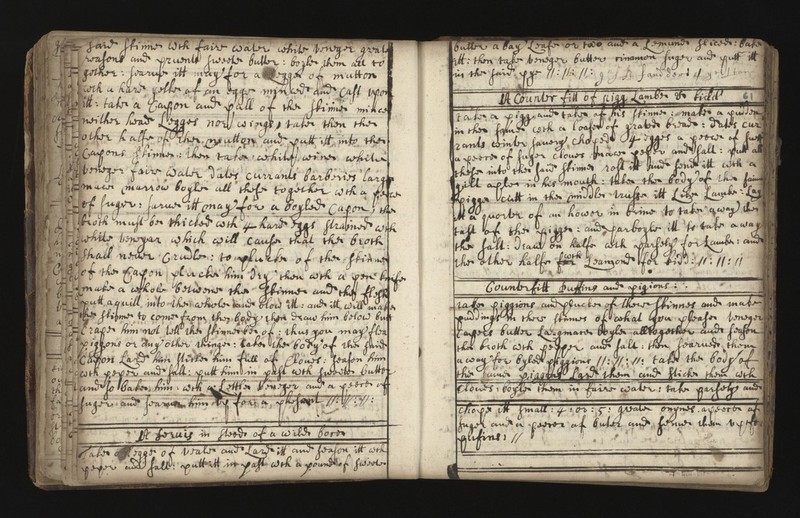 said skinne wth faire water white veneger great
reasons and pruens sweete butter: boyle them all to
gether: searue itt may for a legge of mutton
with a hard yolke of an egge minced and cast upon
itt: take a Capon and pull of the skinne mince
neither head Legges nor wings, take then the
other halfe of the mutton and putt itt into the
Capons skinne: then take white wine white
veneger faire water dates currants barberies large
mace marrow boyle all these together wth a peece
of suger: sarue itt may for a boyled Capon, the
broth must be thicked with 4 hard eggs strained with
white venegar which will cause that the broth
shall never Crudle: to plucke of the skinne
of the Capon plucke him dry then with a pen knife
make a whole betweene the skinne and the flesh
putt a quill into the whole and blow itt: and itt will make
the skinne to come from the body then draw him below but
scrape him not tell the skinne bee of: thus you may flea
piggions or any other thinge: take the body of the said
Capon Lard him sticke him full of Cloues: season him
with peper and salt: putt him in past with sweete butter
and so bake him: with a Little veneger and a peece of
suger: and searue him up for a phesant
A Jervis in steed of a wilde bore
Take a Legge of veale and Lard itt and season itt with
peper and salt: putt itt in past with a pound of sweete
butter a bay Leafe or two and a Lemund sliced: bake
itt: then take veneger butter cinamon suger and putt itt
in the said pye
A Counter fitt of pigg Lambe & kidd 61
take a pigg and take of his skinne: make a pudden
in the same with a loafe of grated bread: dates cur
rants winter savery choped 6 egges a peece of suett
a peece of suger cloues mace peper and salt: putt all
these into the said skinne rost itt and send itt with a
aple in his mouth: then the body of the same
pigge cutt in the middle trusse itt Like Lambe: Lay
itt a quarter of an hower in brine to take away the
tast of the pigge: and parboyle itt to take away
the salt: draw on halfe with parsly for Lambe: and
the other halfe with Leamond for kidd
Counterfitt puffins and pigions:
take piggions and plucke of there skinnes and make
puddings in there skinnes of what you please veneger
Capers butter Largmace boyle alltogether and season
the broth with pepper and salt: then searue them
away for boyled piggions: take the body of
the same piggions Lard them and sticke them with
Cloues: boyle them in faire water: take parsley and
Chope itt small: 4: or: 5: greate onyons a peece of
suger and a peece of butter and serue them up for
puffins: